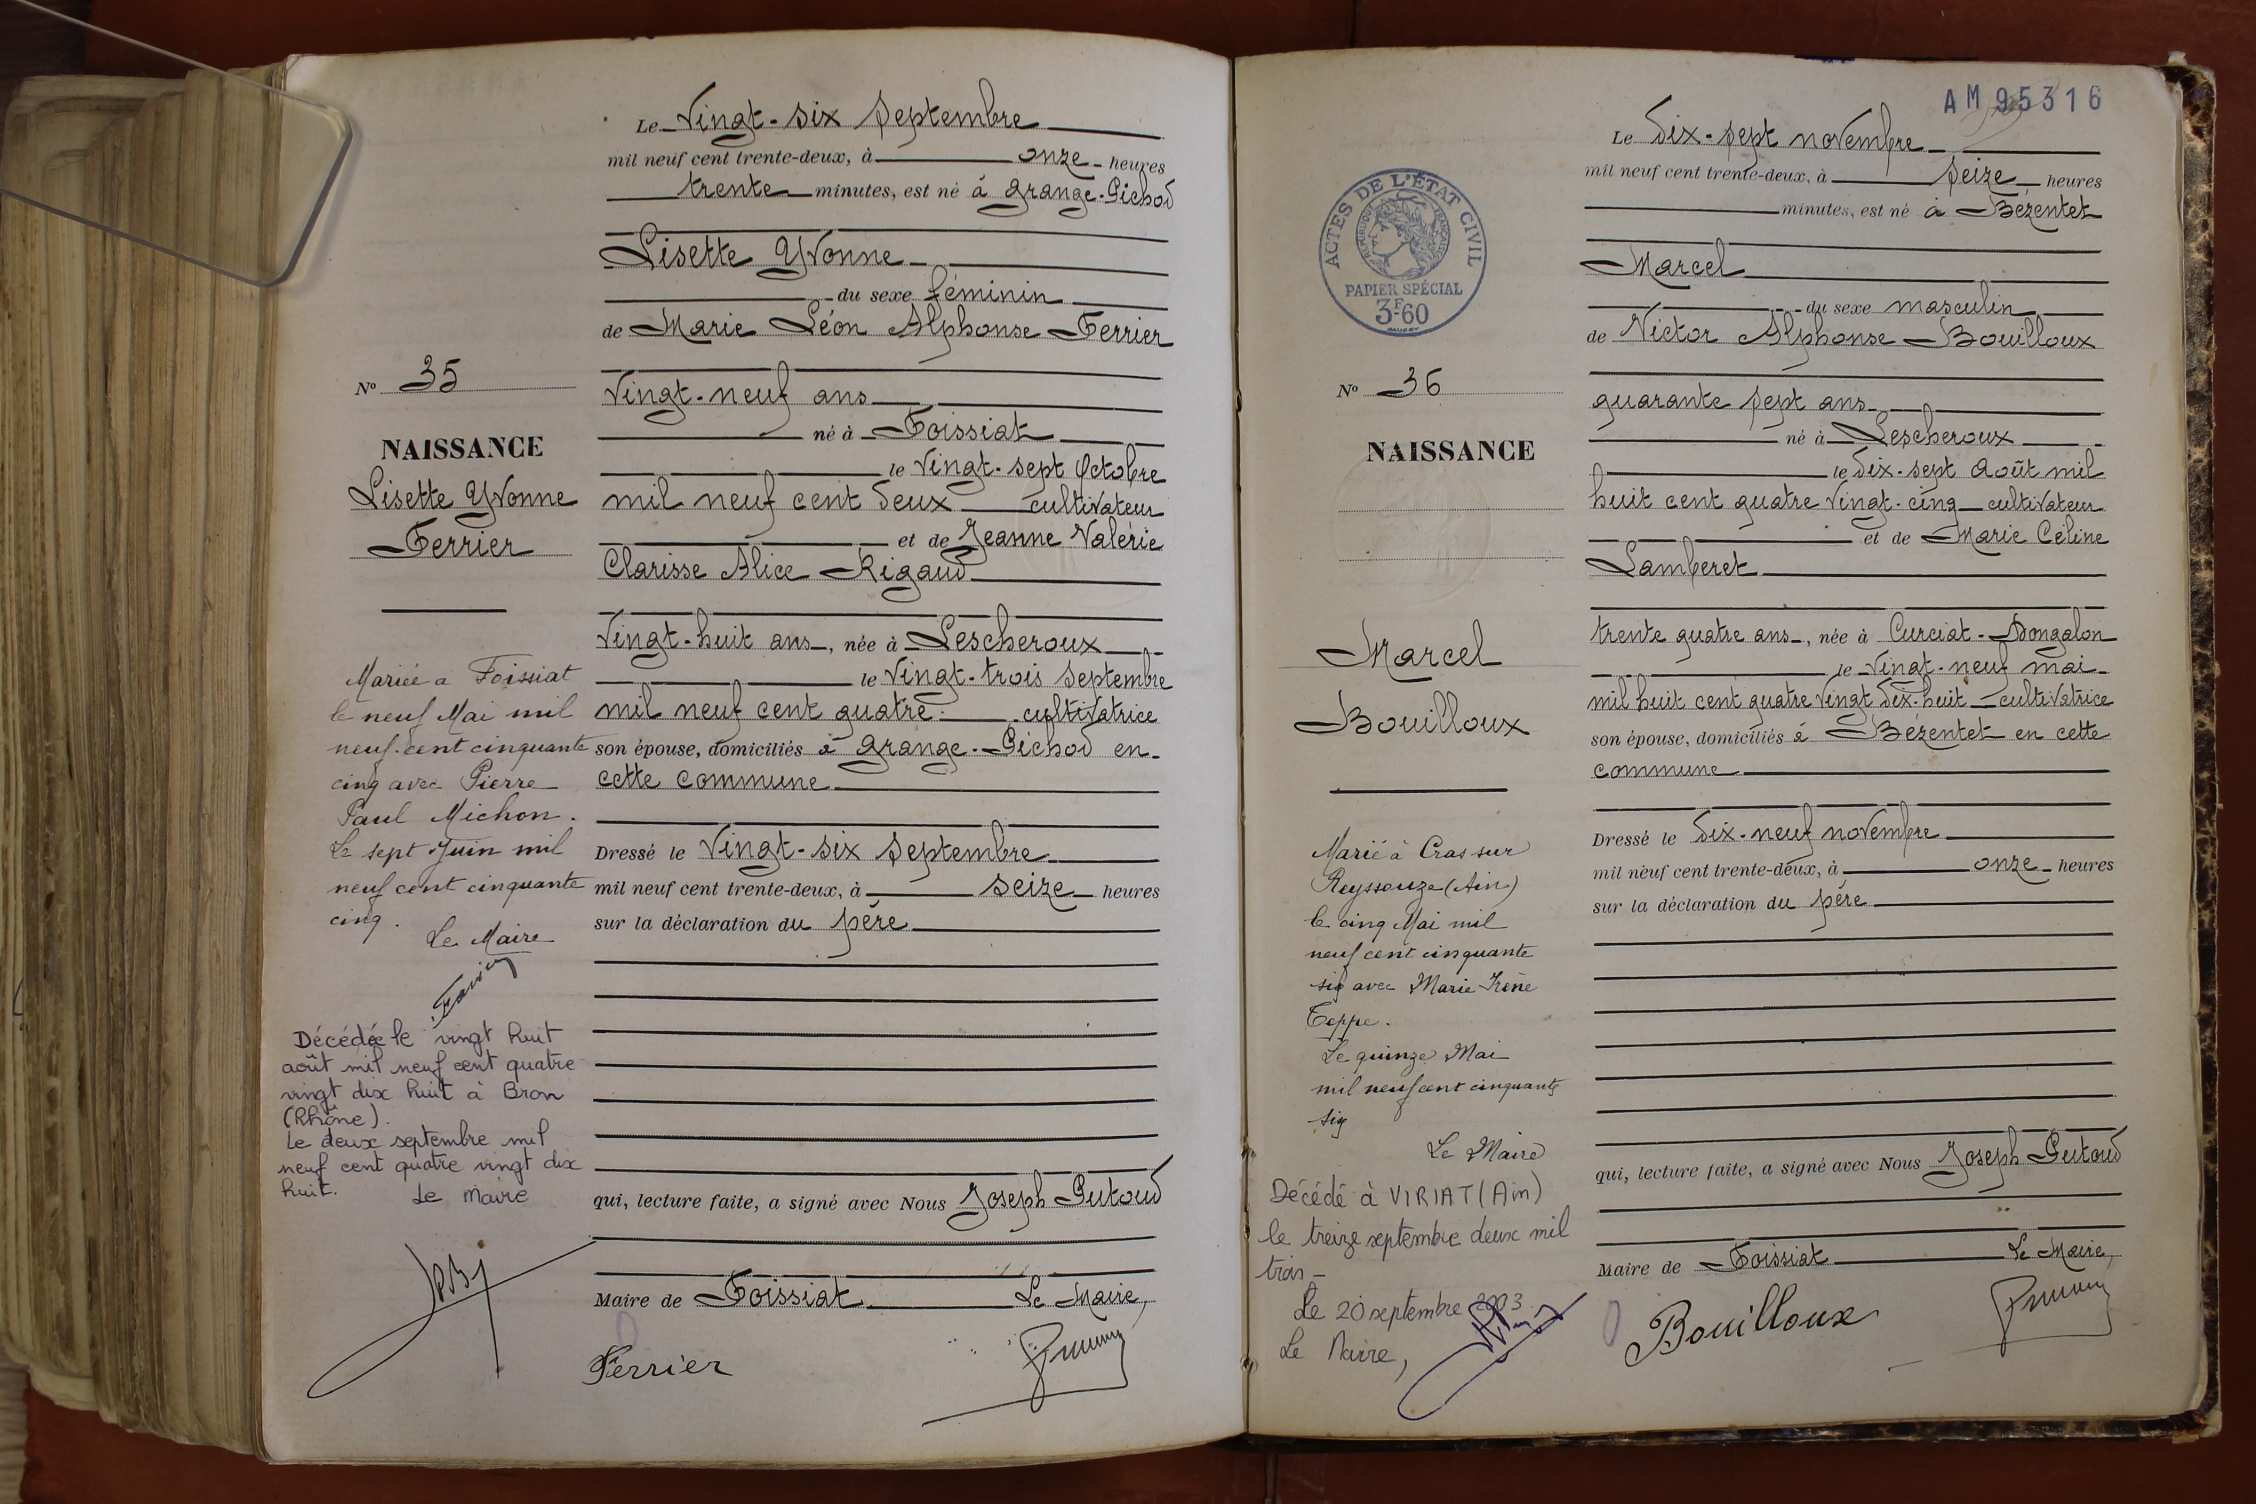 Le Vingt-six Septembre
mil neuf cent trente-deux, à onze heures
trente minutes, est né à Grange-Pichod
Lisette Yvonne
du sexe féminin
de Marie Léon Alphonse Ferrier
Vingt-neuf ans
né à Foissiat
le Vingt-sept Octobre
mil neuf cent deux cultivateur
et de Jeanne Valérie
Clarisse Alice Rigaud
Vingt-huit ans, née à Lescheroux
le Vingt-trois Septembre
mil neuf cent quatre cultivatrice
son épouse, domiciliés à Grange-Pichod en
cette commune
Dressé le Vingt-six Septembre
mil neuf cent trente-deux, à seize heures
sur la déclaration du père
qui, lecture faite, a signé avec Nous Joseph Putoud
Maire de Foissiat Le Maire,
Ferrier
No 35
NAISSANCE
Lisette Yvonne
Ferrier
Mariée a Foissiat
le neuf Mai mil
neuf cent cinquante
cinq avec Pierre
Paul Michon.
Le sept Juin mil
neuf cent cinquante
cinq.
Le Maire
Décédée le vingt huit
août mil neuf cent quatre
vingt dix huit à Bron
(Rhône).
Le deux septembre mil
neuf cent quatre vingt dix
huit.
Le Maire
AM 95316
Le Dix-sept novembre
mil neuf cent trente-deux, à seize heures
minutes, est né à Bézentet
Marcel
du sexe masculin
de Victor Alphonse Bouilloux
quarante sept ans
né à Lescheroux
le Dix-sept Août mil
huit cent quatre vingt-cinq cultivateur
et de Marie Céline
Lamberet
trente quatre ans, née à Curciat-Dongalon
le Vingt-neuf mai
mil huit cent quatre vingt dix-huit cultivatrice
son épouse, domiciliés à Bézentet en cette
commune
Dressé le Dix-neuf novembre
mil neuf cent trente-deux, à onze heures
sur la déclaration du père
qui, lecture faite, a signé avec Nous Joseph Putoud
Maire de Foissiat Le Maire,
Bouilloux
ACTES DE L'ÉTAT CIVIL
RÉPUBLIQUE FRANÇAISE
PAPIER SPÉCIAL
3F60
No 36
NAISSANCE
Marcel
Bouilloux
Marié à Cras sur
Reyssouze (Ain)
le cinq Mai mil
neuf cent cinquante
six avec Marie Irène
Teppe.
Le quinze Mai
mil neuf cent cinquante
six
Le Maire
Décédé à VIRIAT (Ain)
le treize septembre deux mil
trois
Le 20 septembre 2003
Le Maire,